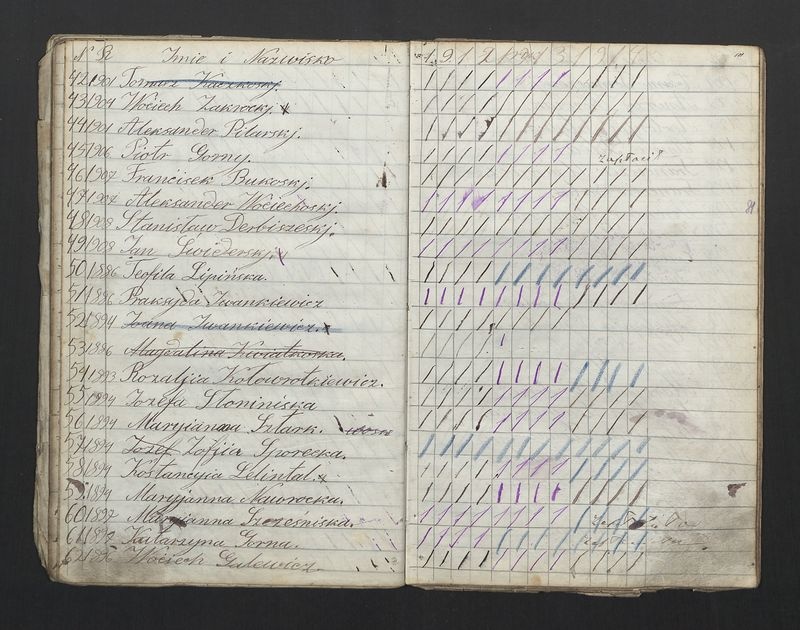 № R Imie i Nazwisko 1912 roku 1914
42/1901 Tomasz Kaczkoskj
43/1904 Woiciech Zakrockj. x
44/1901 Aleksander Pilarskj.
45/1906 Piotr Gorny. zapłacił
46/1907 Francisek Bukoskj.
47/1907 Aleksander Woiciechoskj.
48/1908 Stanisław Derbiszeskj. 81
49/1908 Jan Swiderskj.
50/1886 Teofila Lipińska.
51/1886 Praksyda Iwankiewicz
52/1894 Joana Iwankiewicz. x
53/1886 Magdalina Kwiatkoska.
54/1893 Rozaljia Kołowrotkiewicz.
55/1894 Jozefa Słoniniska
56/1894 Maryianna Sztark.
57/1894 Jozef Zofjia Sporecka.
58/1894 Kostancyia Lelintal. x
59/1894 Maryjanna Naworocka.
60/1897 Maryianna Szczesniska.
61/1892 Katarzyna Gorna.
62/1896 Woiciech Galewicz.